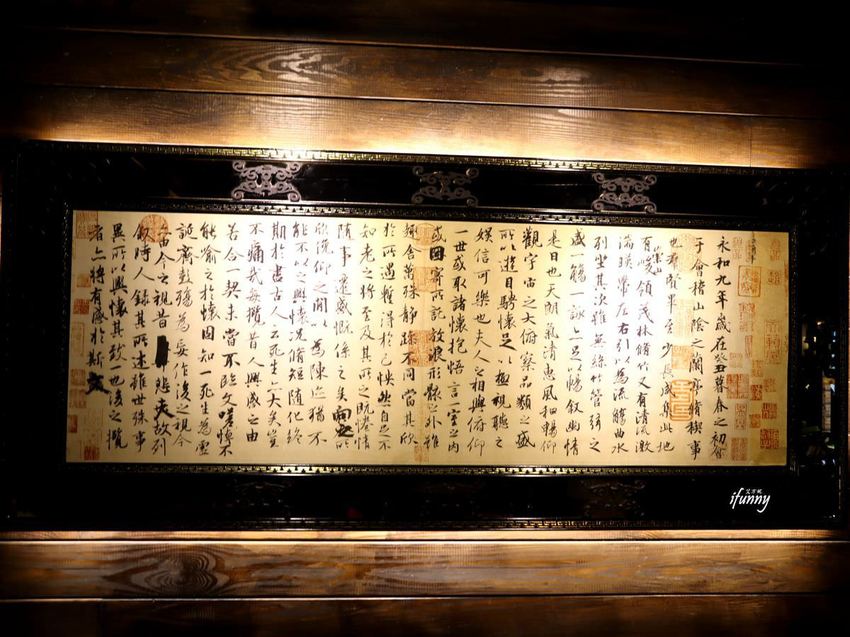 永和九年歲在癸丑暮春之初會
于會稽山陰之蘭亭脩禊事
也群賢畢至少長咸集此地
有崇山峻領茂林脩竹又有清流激
湍暎帶左右引以為流觴曲水
列坐其次雖無絲竹管弦之
盛一觴一詠亦足以暢敘幽情
是日也天朗氣清惠風和暢仰
觀宇宙之大俯察品類之盛
所以遊目騁懷足以極視聽之
娛信可樂也夫人之相與俯仰
一世或取諸懷抱悟言一室之內
或因寄所託放浪形骸之外雖
趣舍萬殊靜躁不同當其欣
於所遇蹔得於己怏然自足不
知老之將至及其所之既惓情
隨事遷感慨係之矣向之所
欣俛仰之閒以為陳迹猶不
能不以之興懷況脩短隨化終
期於盡古人云死生亦大矣豈
不痛哉每攬昔人興感之由
若合一契未嘗不臨文嗟悼不
能喻之於懷固知一死生為虛
誕齊彭殤為妄作後之視今
亦由今之視昔悲夫故列
敘時人錄其所述雖世殊事
異所以興懷其致一也後之攬
者亦將有感於斯文
ifunny